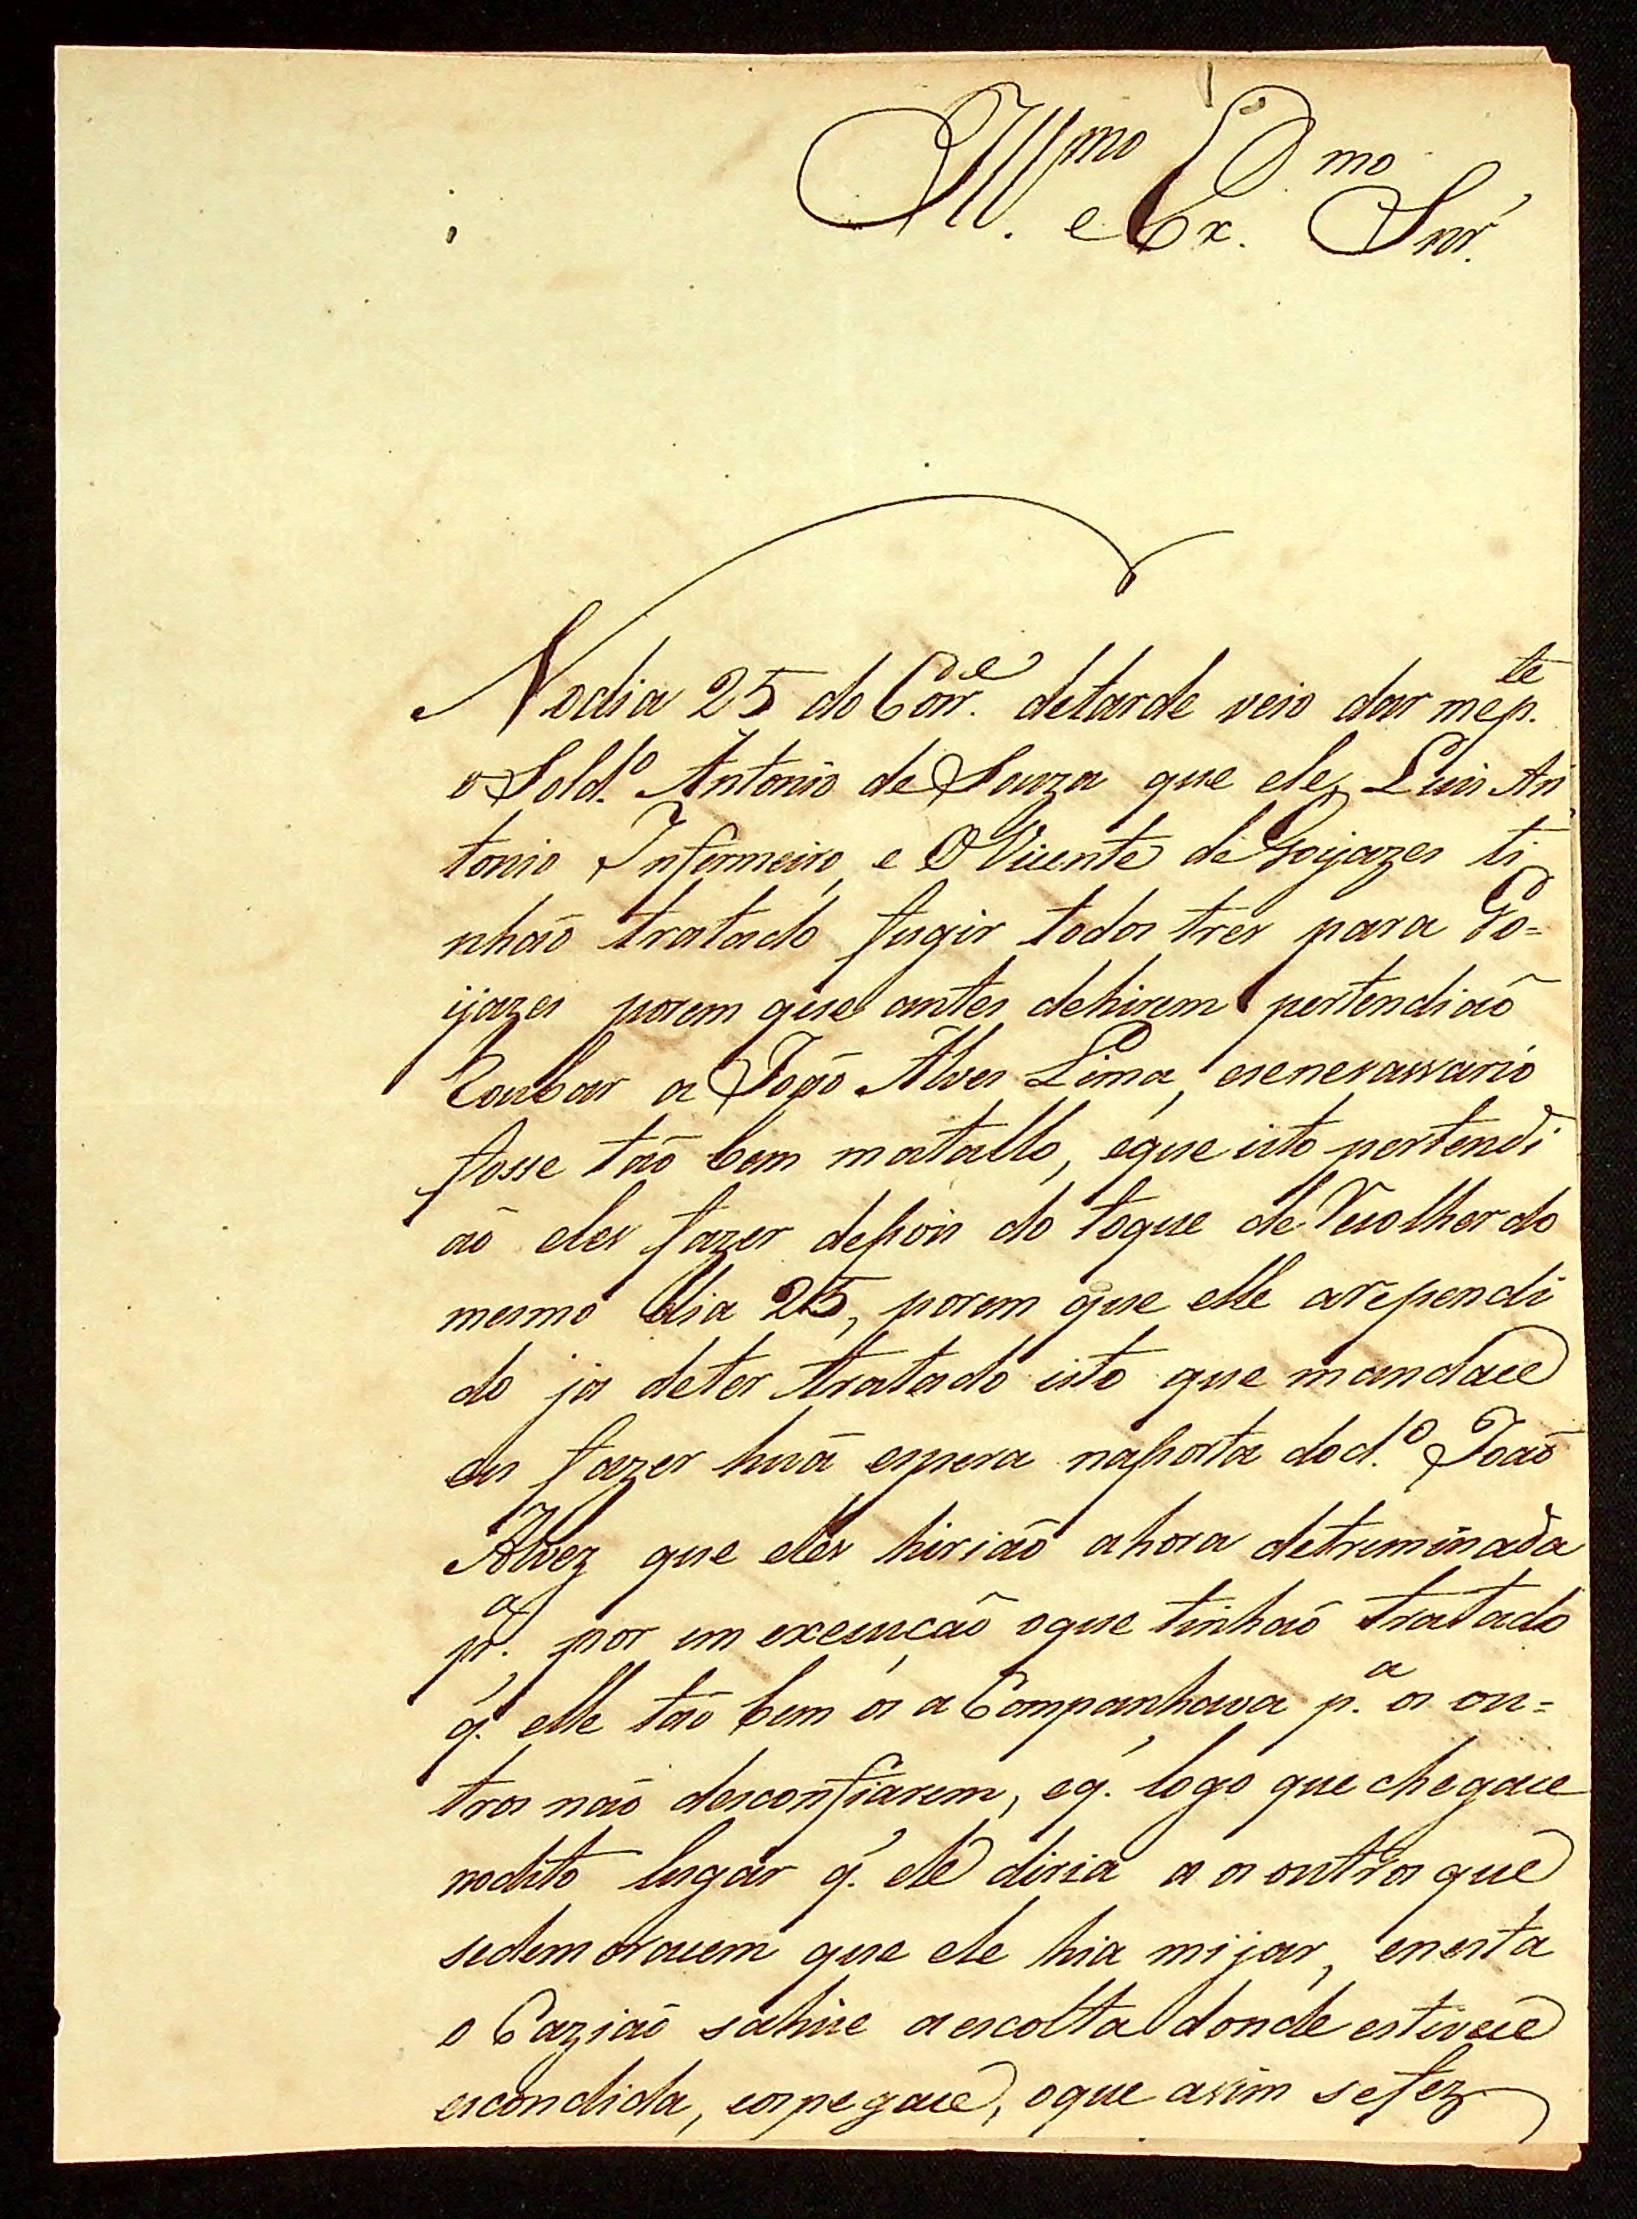 Ill.mo e Ex.mo Snr.
No dia 25 do Corr.e detarde veio dar me p.te
o Sold.o Antonio de Souza que ele, Luis An
tonio Infermeiro, e O Vicente de Goijazes ti
nhaõ tratado fugir todos tres para Go=
ijazes porem que antes dehirem pertendiaõ
Roubar a Joaõ Alves Lima, esenesassario
fosse taõ bem matallo, eque isto pertendi
aõ eles fazer depois do toque de Recolher do
mesmo dia 25, porem que elle arependi
do ja deter tratado isto que mandace
eu fazer huã espera naporta dod.o Joaõ
Alvez que eles hiriaõ ahora detreminada
p.a por em execuçaõ oque tinhaõ tratado
q. elle taõ bem os aCompanhava p.a os ou=
tros naõ desconfiarem, eq. logo que chegace
nodito lugar q. ele diria a os outros que
sedemoracem que ele hia mijar, enesta
o Caziaõ sahise aescolta donde estivece
escondida, eospegace, oque asim sefez